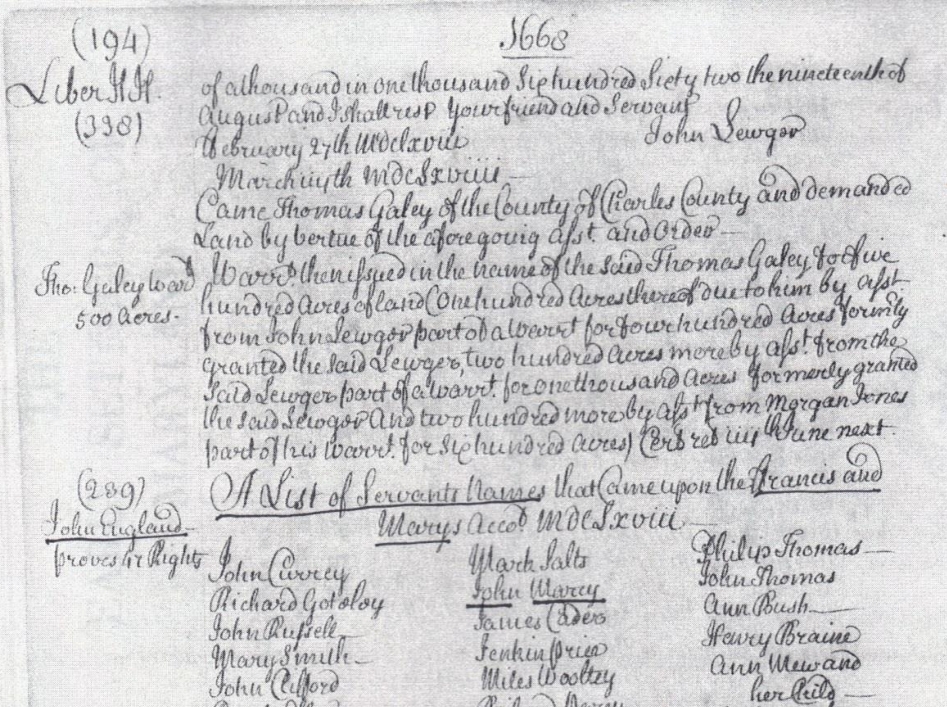 (194)
1668
Liber H H.
(338)
of a thousand in one thousand Six hundred Sixty two the nineteenth of
August and I shall rest your friend and Servant
John Lewger
ffebruary 27th MDCLxviii
March iiijth MDCLxviiii
Came Thomas Galey of the County of Charles County and demanded
Land by vertue of the aforegoing asst. and Order
Tho: Galey Warrt
500 Acres.
Warrt. then issued in the name of the said Thomas Galey for five
hundred Acres of land (One hundred Acres thereof due to him by asst.
from John Lewger part of a warrt for four hundred Acres formrly
granted the said Lewger, two hundred acres more by asst. from the
said Lewger part of a warrt. for one thousand Acres formerly granted
the said Lewger And two hundred more by asst from Morgan Jones
part of his warrt. for Six hundred Acres) Cert ret iiijth June next.
(239)
John England
proves 47 Rights
A List of Servants Names that Came upon the ffrancis and
Marys Accot MDCLxviii
John Currey
Richard Gotsloy
John Russell
Mary Smith
John Clifford
Mark Salts
John Marcy
James Cader
Jenkin Price
Miles Wooltey
Philip Thomas
John Thomas
Ann Bush
Henry Braine
Ann Mew and
her Child